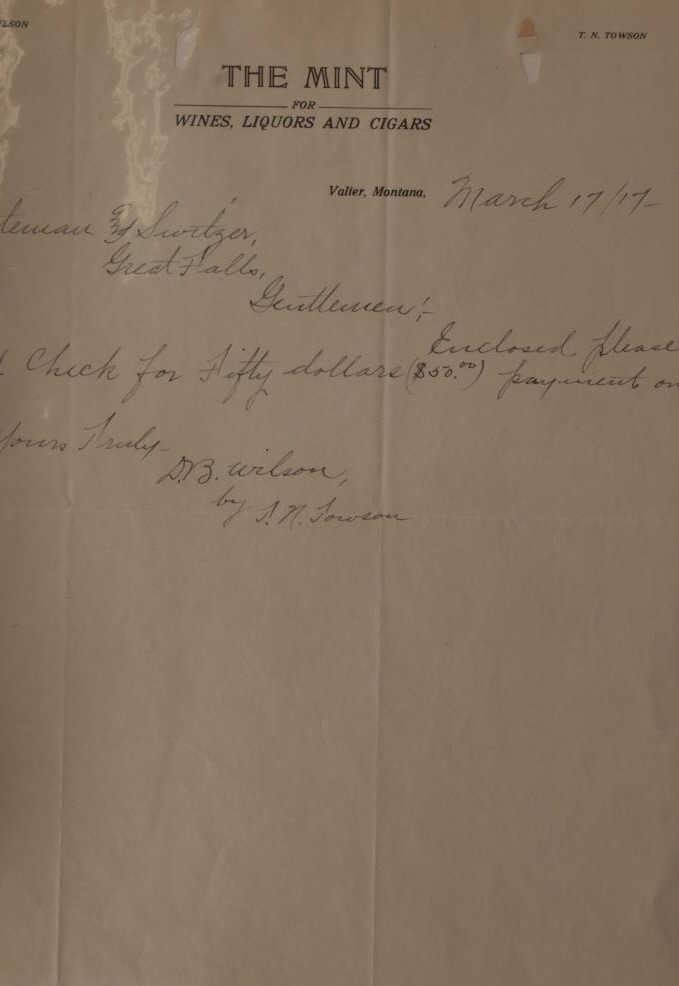 ILSON
T. N. TOWSON
THE MINT
FOR
WINES, LIQUORS AND CIGARS
Valier, Montana, March 17/17-
teman & Switzer,
Great Falls,
Gentlemen:-
Enclosed please
d Check for Fifty dollars ($50.00) payment on
Yours Truly-
D.B. Wilson,
by T. N. Towson